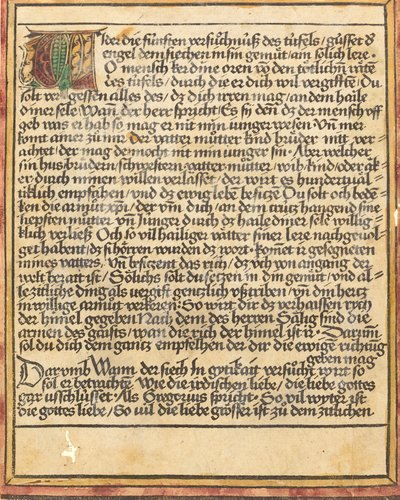 Wider die fünften versüchnuß des tüfels / güsset d'
engel dem siechen in sin gemüt / ain solich lere ·
O mensch ker dine oren vō den tötlichn̄ räte
des tüfels / durch die er dich wil vergifftē / Du
solt vergessen alles des / dz dich irren mag / an dem haile
diner sele. Wan der herre spricht / Es sy den̄ dz der mensch off
geb was er hab so mag er nit min iunger wesen · Vn̄ wer
komt zů mir der vatter můtter kind brüder nitt ver
achtet / der mag dennocht nit min iunger sin · Aber welcher
sin hus brüdern / schwestern / vatter můtter / wib / kind / oder äk
er durch minen willen verlasset / der wirt es hundertual
tiklich empfahen / vnd dz ewig lebē besiczē Du solt och bedē
ken die armůt / der vn̄ dich / an dem crütz hangend sine
liepsten můtter vn̄ junger durch dz haile diner sele willig
klich verließ Och so vil hailiger vätter siner lere nachgeuol
get habent / dz si hörren wurden dz wort · Komēt ir gesegneten
mines vatters · Vn̄ besiczent das rich / dz üch von angang der
welt berait ist / Sölichs solt du seczen in din gemüt / vnd al
le zitliche ding als vergift genczlich vßtriben / vn̄ din hertz
in willige armůt verkeren · So wirt dir dz verhaissen rych
der himel gegeben Nach dem des herren Sälig sind die
armen des gaists / wan die rich der himel ist ir · Darum̄
solt du dich dem gantz empfelhen der dir die ewige richtūg
geben mag
Darumb Wann der siech in gytikait versücht wirt so
söl er betrachtē · Wie die irdischen liebe / die liebe gottes
gar uschlüsset · Als Gregorius spricht · So vil wyter ist
die gottes liebe / So vil die liebe grösser ist zů dem zitlichen